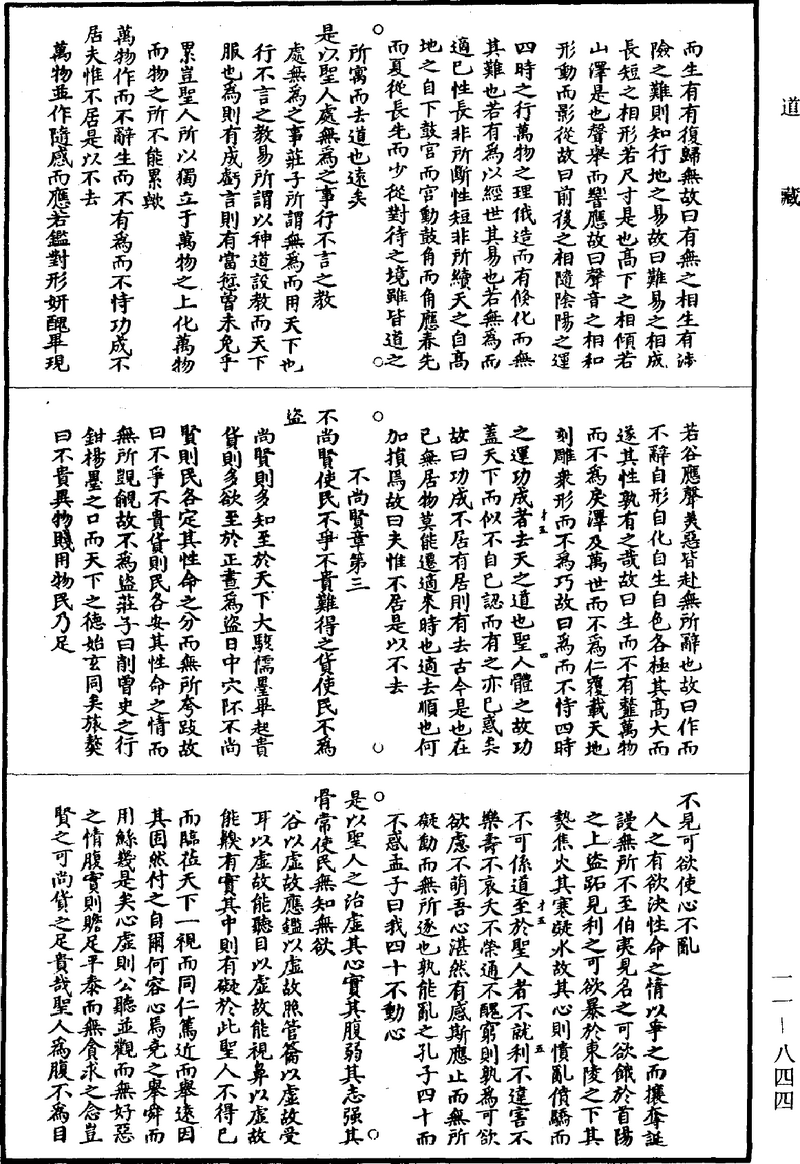 道藏
而生有有復歸無故曰有無之相生有涉
險之難則知行地之易故曰難易之相成
長短之相形若尺寸是也高下之相傾若
山澤是也聲舉而響應故曰聲音之相和
形動而影從故曰前後之相隨陰陽之運
四時之行萬物之理俄造而有倏化而無
其難也若有為以經世其易也若無為而
適已性長非所斷性短非所續天之自高
地之自下鼓宮而宮動鼓角而角應春先
而夏從長先而少從對待之境雖皆道之
所寓而去道也遠矣
是以聖人處無為之事行不言之教
處無為之事莊子所謂無為而用天下也
行不言之教易所謂以神道設教而天下
服也為則有成虧言則有當愆曾未免乎
累豈聖人所以獨立于萬物之上化萬物
而物之所不能累歟
萬物作而不辭生而不有為而不恃功成不
居夫惟不居是以不去
萬物並作隨感而應若鑑對形妍醜畢現
若谷應聲美惡皆赴無所辭也故曰作而
不辭自形自化自生自色各極其高大而
遂其性孰有之哉故曰生而不有𩐎萬物
而不為戾澤及萬世而不為仁覆載天地
刻雕衆形而不為巧故曰為而不恃四時
之運功成者去天之道也聖人體之故功
蓋天下而似不自已認而有之亦已惑矣
故曰功成不居有居則有去古今是也在
已無居物莫能遷適來時也適去順也何
加損焉故曰夫惟不居是以不去
不尚賢章第三
不尚賢使民不爭不貴難得之貨使民不為
盜
尚賢則多知至於天下大駭儒墨畢起貴
貨則多欲至於正晝為盜日中穴阫不尚
賢則民各定其性命之分而無所夸跂故
曰不爭不貴貨則民各安其性命之情而
無所覬覦故不為盜莊子曰削曾史之行
鉗楊墨之口而天下之德始玄同矣旅獒
曰不貴異物賤用物民乃足
不見可欲使心不亂
人之有欲決性命之情以爭之而攘奪誕
謾無所不至伯夷見名之可欲餓於首陽
之上盜跖見利之可欲暴於東陵之下其
熱焦火其寒凝冰故其心則憒亂僨驕而
不可係道至於聖人者不就利不違害不
樂壽不哀夭不榮通不醜窮則孰為可欲
欲慮不萌吾心湛然有感斯應止而無所
礙動而無所逐也孰能亂之孔子四十而
不惑孟子曰我四十不動心
是以聖人之治虛其心實其腹弱其志强其
骨常使民無知無欲
谷以虛故應鑑以虛故照管籥以虛故受
耳以虛故能聽目以虛故能視鼻以虛故
能齅有實其中則有礙於此聖人不得已
而臨莅天下一視而同仁篤近而舉遠因
其固然付之自爾何容心焉堯之舉舜而
用鯀幾是矣心虛則公聽並觀而無好惡
之情腹實則贍足平泰而無貪求之念豈
賢之可尚貨之足貴哉聖人為腹不為目
一一—八四四